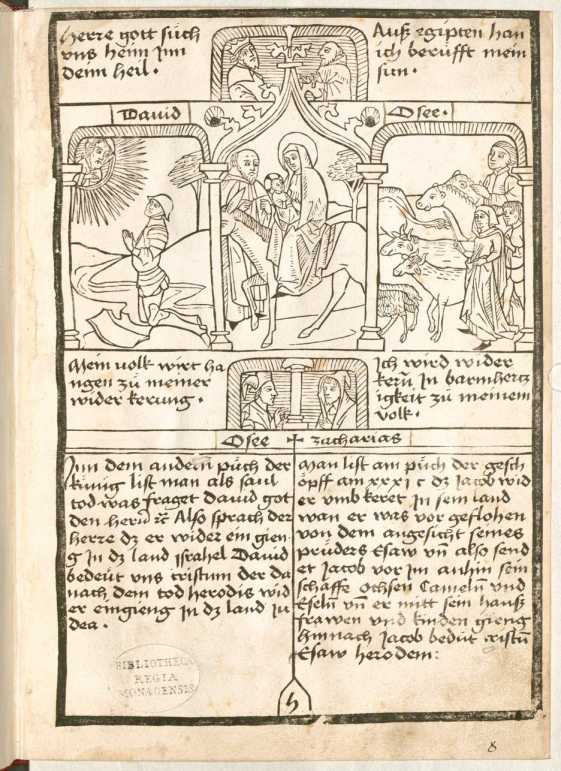 Herre gott sůch
vns heim jnn
deim heil .
Auß egipten han
ich berůfft mein
sun .
Dauid
Osee .
Mein volk wirt ha
ngen zů meiner
wider kerung .
Ich wird wider
kern̄ Jn barmhertz
igkeit zů meinem
volk .
Osee
zacharias
Inn dem andern půch der
kůnig list man als saul
tod was fraget dauid got
den hern̄ ⁊c Also sprach der
herre dz er wider ein gien
g in dz land israhel Dauid
bedeüt vns cristum der da
nach dem tod herodis wid
er eingieng in dz land ju
dea .
Man list am půch der gesch
öpff am xxxi c dz Jacob wid
er vmb keret Jn sein land
wan er was vor geflohen
von dem angesicht seines
průders Esaw vn̄ also send
et Jacob vor im anhin sein
schaffe ochsen Cameln̄ vnd
Eseln̄ vn̄ er mitt sein hauß
frawen vnd kinden gieng
hinnach Jacob bedüt cristū
Esaw herodem :
BIBLIOTHECA
REGIA
MONACENSIS
h
8